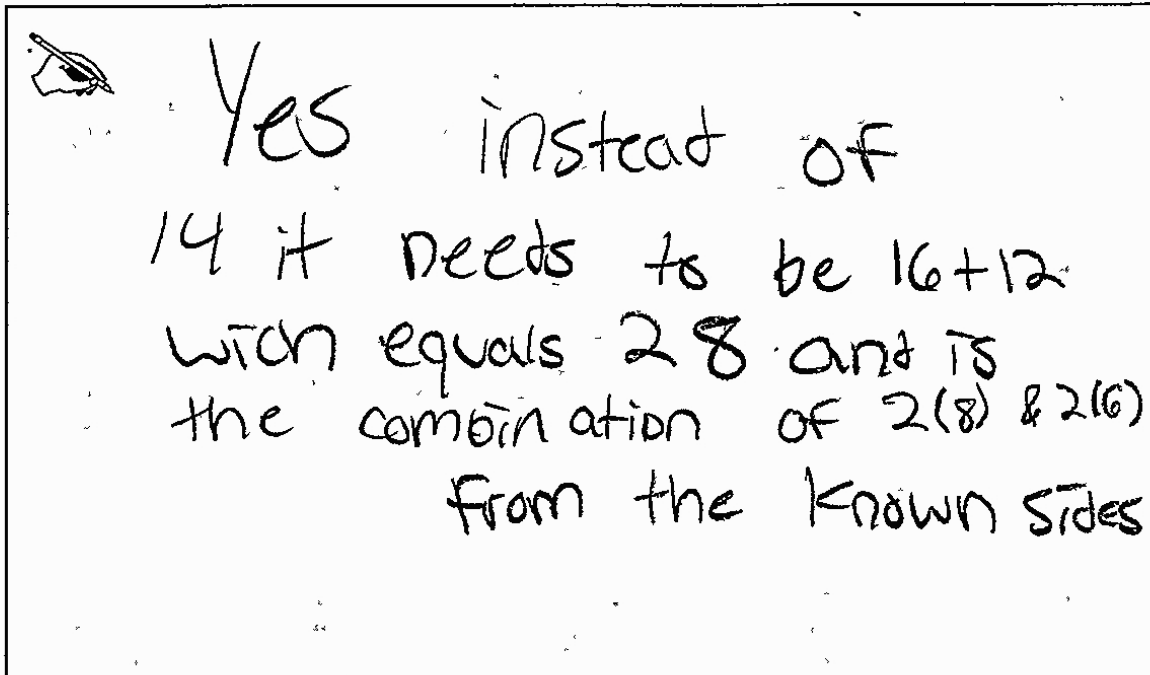 Yes instead of
14 it needs to be 16+12
wich equals 28 and is
the combination of 2(8) & 2(6)
from the known sides